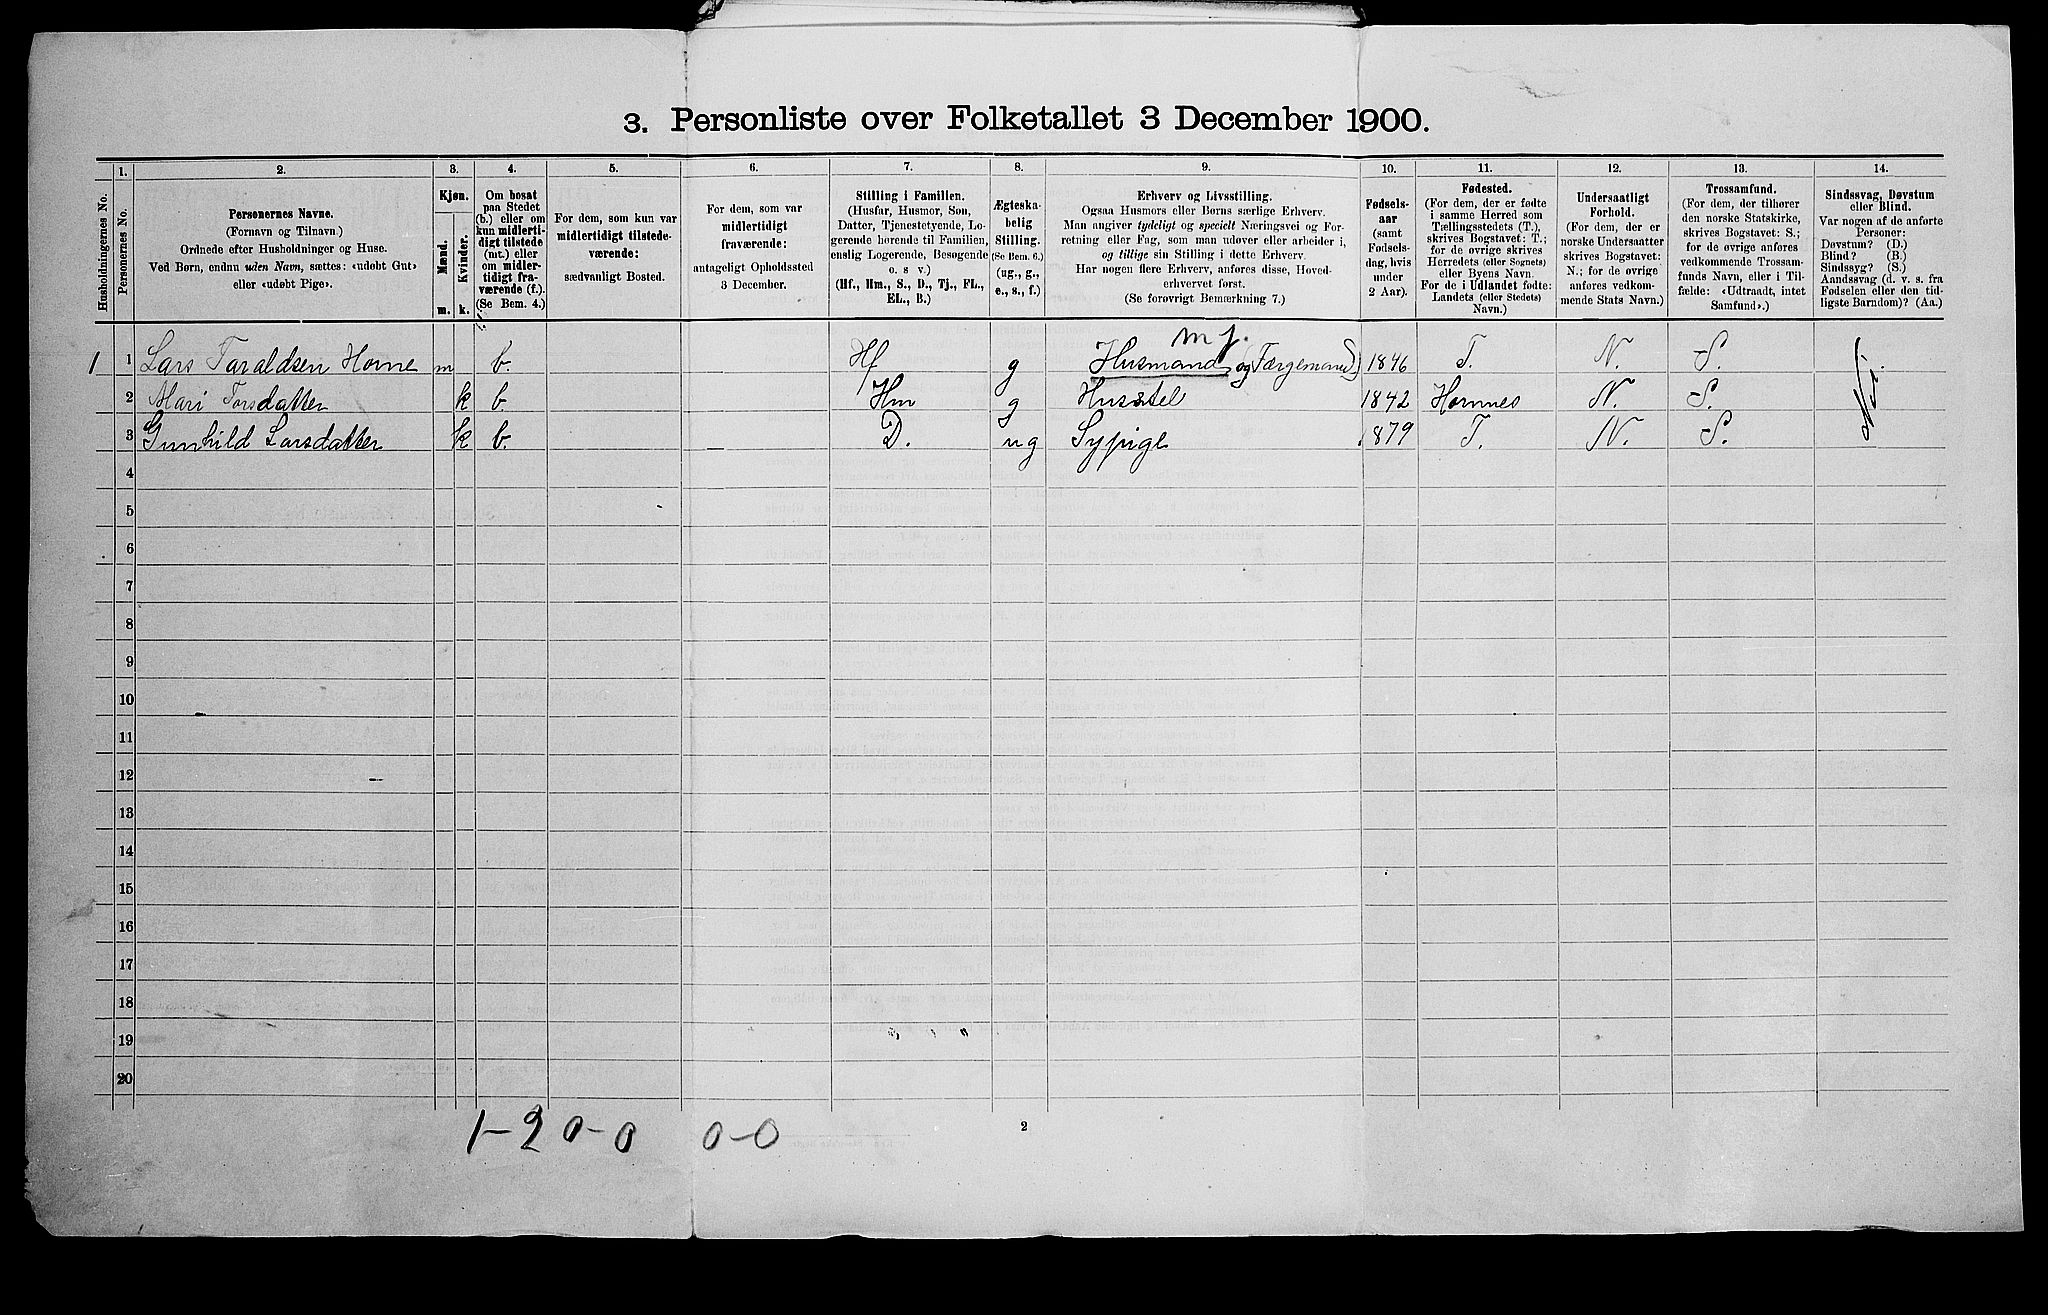 3. Personliste over Folketallet 3 December 1900.
Husholdningernes No.
1.
Personernes No.
2.
Personernes Navne.
(Fornavn og Tilnavn.)
Ordnede efter Husholdninger og Huse.
Ved Børn, endnu uden Navn, sættes: «udøbt Gut»
eller «udøbt Pige».
3.
Kjøn.
Mænd.
Kvinder.
m. k.
4.
Om bosat
paa Stedet
(b.) eller om
kun midlerti-
digt tilstede
(mt.) eller
om midler-
tidigt fra-
værende (f.).
(Se Bem. 4.)
5.
For dem, som kun var
midlertidigt tilstede-
værende:
sædvanligt Bosted.
6.
For dem, som var
midlertidigt
fraværende:
antageligt Opholdssted
3 December.
7.
Stilling i Familien.
(Husfar, Husmor, Søn,
Datter, Tjenestetyende, Lo-
gerende hørende til Familien,
enslig Logerende, Besøgende
o. s v.)
(Hf., Hm., S., D., Tj., FL.,
EL., B.)
8.
Ægteska-
belig
Stilling.
(Se Bem. 6.)
(ug., g.,
e., s., f.)
9.
Erhverv og Livsstilling.
Ogsaa Husmors eller Børns særlige Erhverv.
Man angiver tydeligt og specielt Næringsvei og For-
retning eller Fag, som man udøver eller arbeider i,
og tillige sin Stilling i dette Erhverv.
Har nogen flere Erhverv, anføres disse, Hoved-
erhvervet først.
(Se forøvrigt Bemærkning 7.)
10.
Fødsels-
aar
(samt
Fødsels-
dag, hvis
under
2 Aar).
11.
Fødested.
(For dem, der er fødte
i samme Herred som
Tællingsstedets (T.),
skrives Bogstavet: T.;
for de øvrige skrives
Herredets (eller Sognets)
eller Byens Navn.
For de i Udlandet fødte:
Landets (eller Stedets)
Navn.)
12.
Undersaatligt
Forhold.
(For dem, der er
norske Undersaatter
skrives Bogstavet:
N.; for de øvrige
anføres vedkom-
mende Stats Navn.)
13.
Trossamfund.
(For dem, der tilhører
den norske Statskirke,
skrives Bogstavet: S.;
for de øvrige anføres
vedkommende Trossam-
funds Navn, eller i Til-
fælde: «Udtraadt, intet
Samfund».)
14.
Sindssvag, Døvstum
eller Blind.
Var nogen af de anførte
Personer:
Døvstum? (D.)
Blind? (B.)
Sindssyg? (S.)
Aandssvag (d. v. s. fra
Fødselen eller den tid-
ligste Barndom)? (Aa.)
m j.
1 1 Lars Taraldsen Horne m b. Hf g Husmand (og Færgemand) 1846 T. N. S. Nei.
2 Mari Torsdatter k b. Hm g Husstel 1842 Hornnes N. S.
3 Gunhild Larsdatter k b. D. ug Sypige 1879 T. N. S.
4
5
6
7
8
9
10
11
12
13
14
15
16
17
18
19
20
1-2 0-0 0-0
2